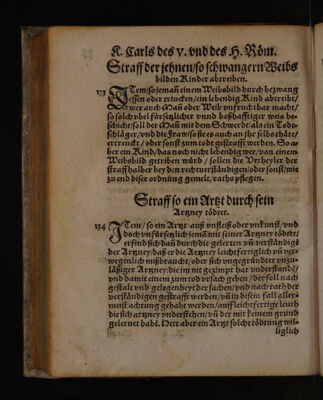 K. Carls des v. vnd des H. Röm.
Straff der jehnen / so schwangern Weibs
bilden Kinder abtreiben.
133 ITem / so jemañ einem Weibsbild durch bezwang
essen oder trincken / ein lebendig Kind abtreibt /
wer auch Mañ oder Weib vnfruchtbar macht /
so solch vbel fürsetzlicher vnnd boßhafftiger weis be-
schicht / soll der Mañ mit dem Schwerdt als ein Tod-
schläger / vnd die fraw / so sie es auch an jhr selbs thäte /
ertrenckt / oder sonst zum todt gestrafft werden. So a-
ber ein Kind / das noch nicht lebendig wer / von einem
Weibsbild getriben würd / sollen die Vrtheyler der
straff halber bey den rechtuerständigen / oder sonst wie
zu end diser ordnung gemelt / raths pflegen.
Straff so ein Artzt durch sein
Artzney tödtet.
134 ITem / so ein Artzt auß vnfleiß oder vnkunst / vnd
doch vnfürsetzlich jemañ mit seiner Artzney tödtet /
erfind sich dañ durch die gelerten vñ verständigẽ
der Artzney / daß er die Artzney leichtfertiglich vñ ver-
wegenlich mißbraucht / oder sich vngegründter vnzu-
läßiger Artzney / die jm nit gezimpt hat vnderstandẽ /
vnd damit einem zum tod vrsach geben / der soll nach
gestalt vnd gelegenheyt der sachen / vnd nach rath der
verständigen gestrafft werden / vñ in disem fall aller-
meist achtung gehabt werden / auff leichtfertige leuth
die sich artzney vnderstehen / vñ der mit keinem grund
gelernet habẽ. Hett aber ein Artzt solche tödtung wil-
liglich